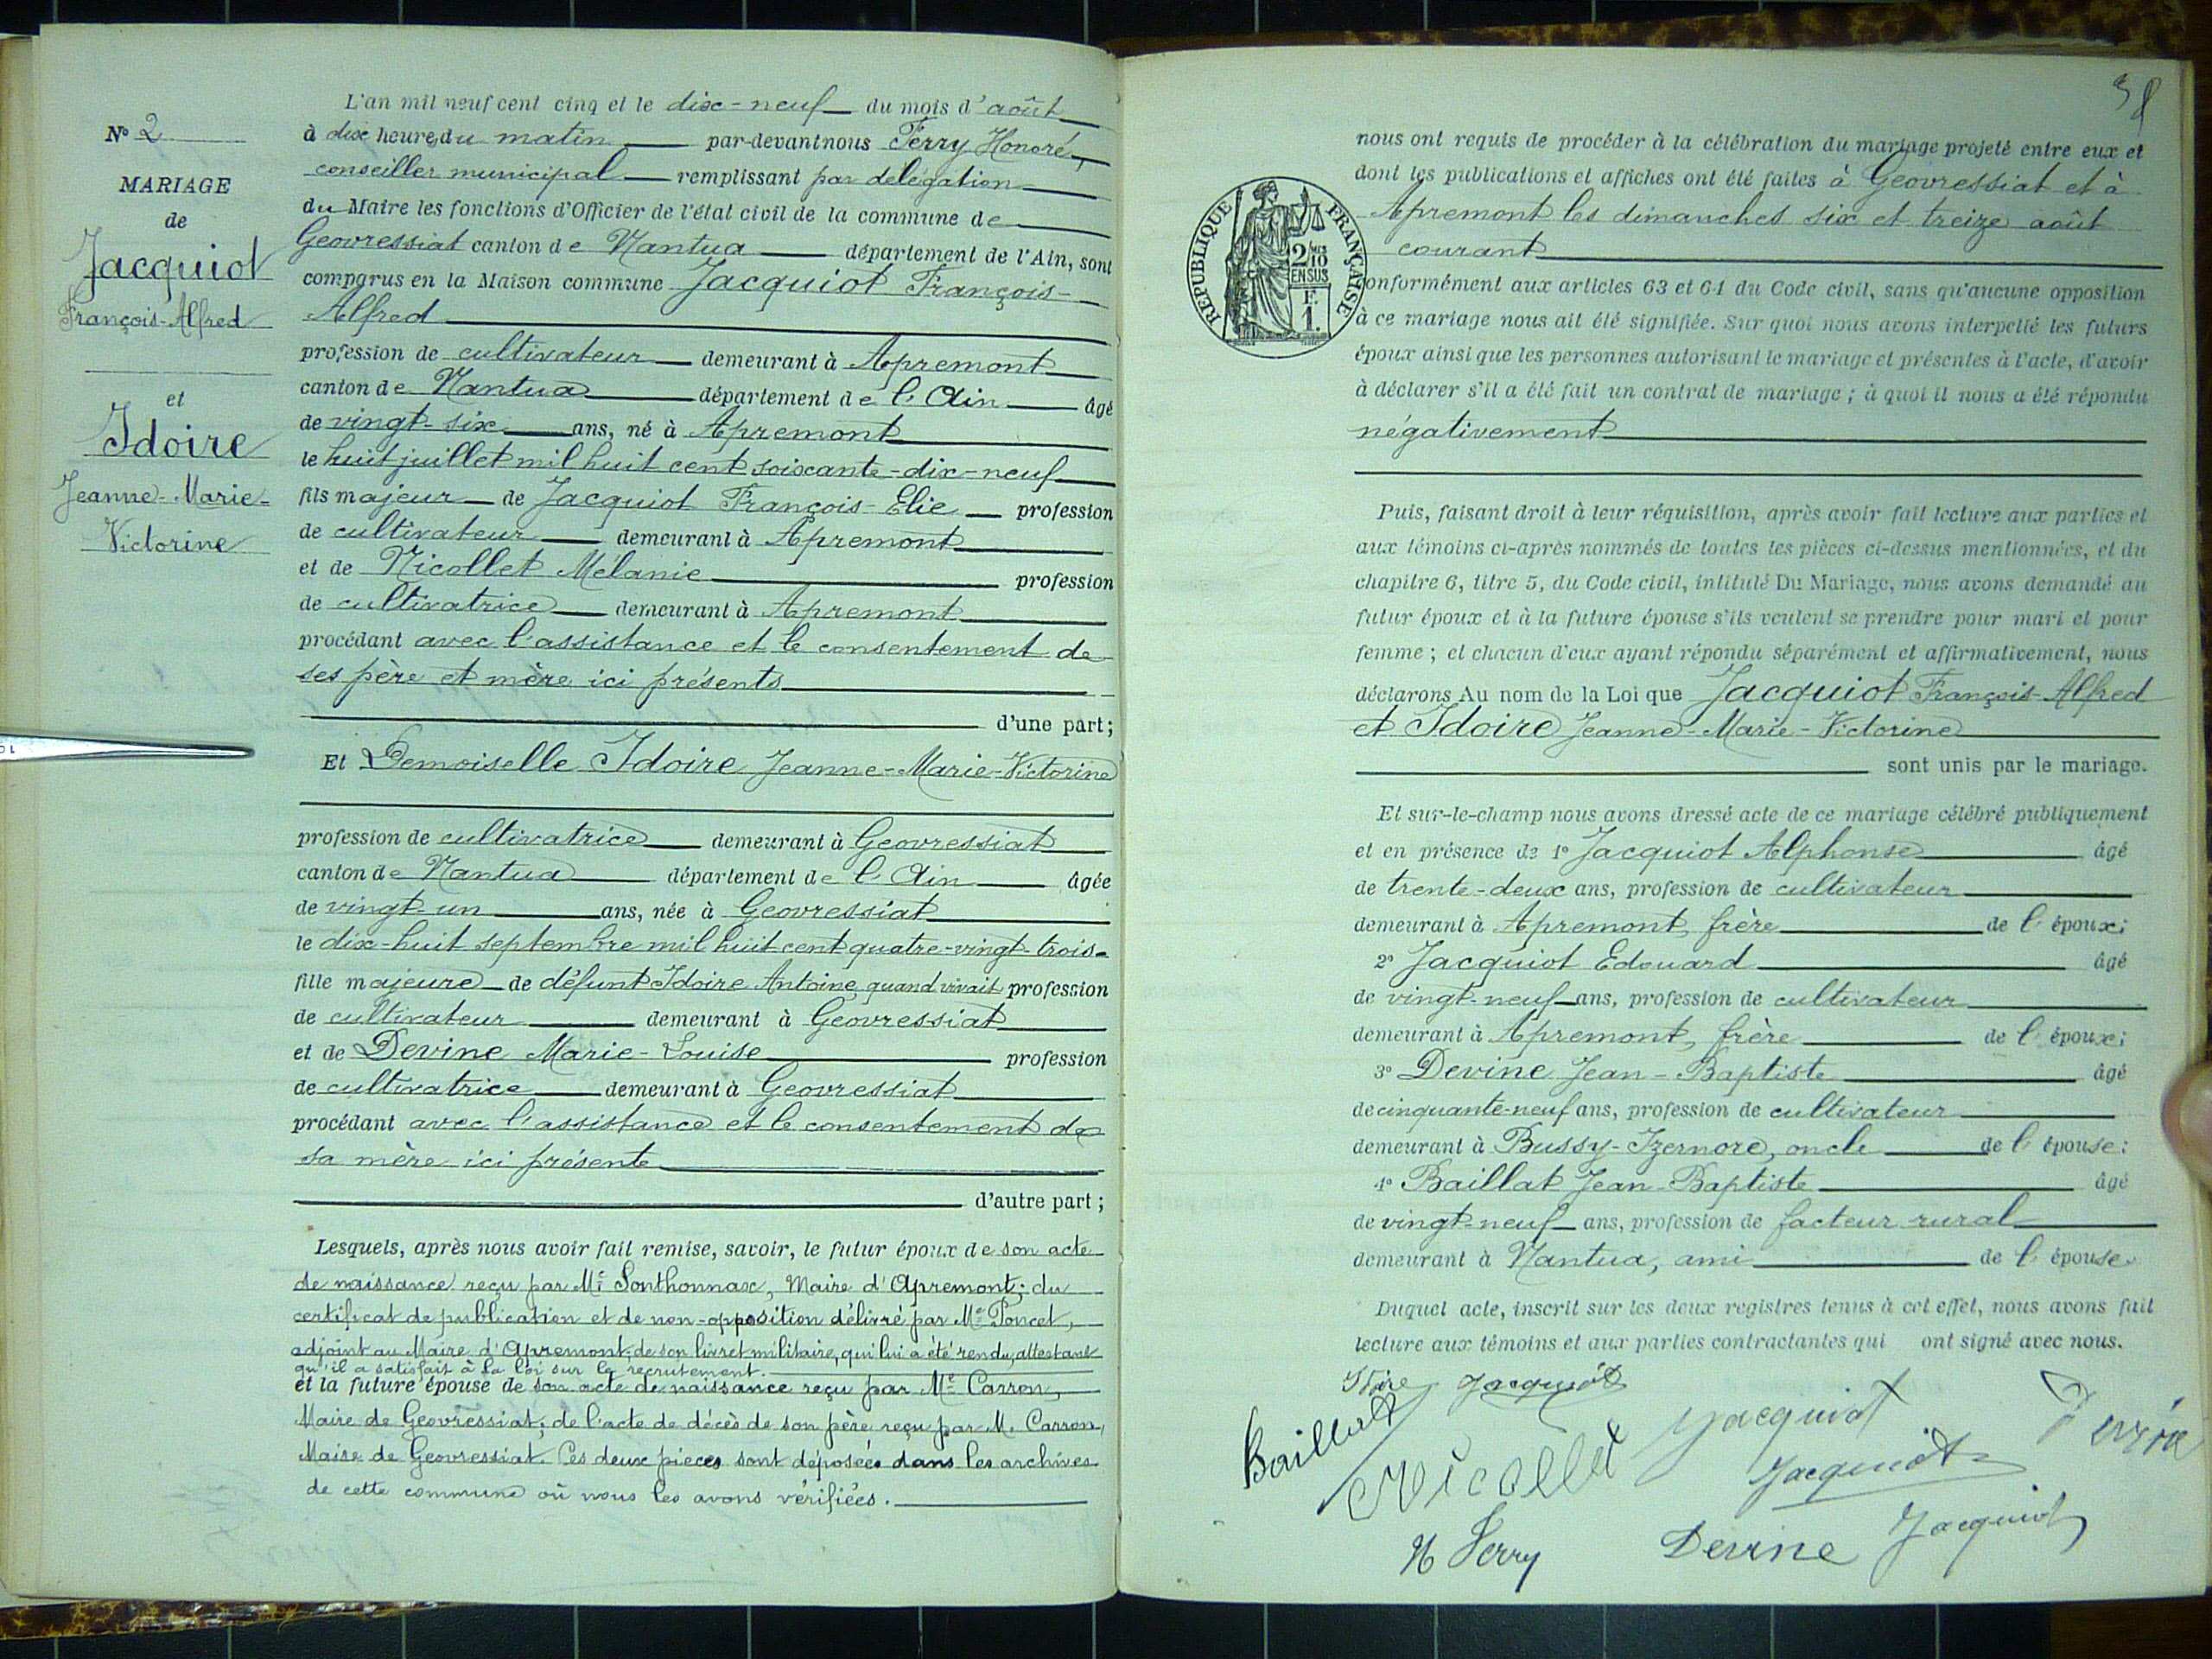 L'an mil neuf cent cinq et le dix-neuf du mois d'août
Nº 2
à dix heures du matin par-devant nous Ferry Honoré,
conseiller municipal remplissant par délégation
MARIAGE
du Maire les fonctions d'Officier de l'état civil de la commune de
de
Geovressiat canton de Nantua département de l'Ain, sont
Jacquiot
comparus en la Maison commune Jacquiot François-
François-Alfred
Alfred
profession de cultivateur demeurant à Apremont
canton de Nantua département de l'Ain âgé
et
de vingt-six ans, né à Apremont
Idoire
le huit juillet mil huit cent soixante-dix-neuf
Jeanne-Marie-
fils majeur de Jacquiot François-Elie profession
Victorine
de cultivateur demeurant à Apremont
et de Nicollet Mélanie profession
de cultivatrice demeurant à Apremont
procédant avec l'assistance et le consentement de
ses père et mère ici présents
d'une part;
Et Demoiselle Idoire Jeanne-Marie-Victorine
profession de cultivatrice demeurant à Geovressiat
canton de Nantua département de l'Ain âgée
de vingt-un ans, née à Geovressiat
le dix-huit septembre mil huit cent quatre-vingt-trois
fille majeure de défunt Idoire Antoine, quand vivait profession
de cultivateur demeurant à Geovressiat
et de Devine Marie-Louise profession
de cultivatrice demeurant à Geovressiat
procédant avec l'assistance et le consentement de
sa mère ici présente
d'autre part;
Lesquels, après nous avoir fait remise, savoir, le futur époux de son acte
de naissance reçu par Mr Sonthonnax, Maire d'Apremont; du
certificat de publication et de non-opposition délivré par Mr Poncet,
adjoint au Maire d'Apremont; de son livret militaire, qui lui a été rendu, attestant
qu'il a satisfait à la loi sur le recrutement.
et la future épouse de son acte de naissance reçu par Mr Carron,
Maire de Geovressiat; de l'acte de décès de son père reçu par M. Carron,
Maire de Geovressiat. Ces deux pièces sont déposées dans les archives
de cette commune où nous les avons vérifiées.
38
nous ont requis de procéder à la célébration du mariage projeté entre eux et
dont les publications et affiches ont été faites à Geovressiat et à
Apremont les dimanches six et treize août
courant
RÉPUBLIQUE FRANÇAISE
2/10
EN SUS
F.
1.
conformément aux articles 63 et 64 du Code civil, sans qu'aucune opposition
à ce mariage nous ait été signifiée. Sur quoi nous avons interpellé les futurs
époux ainsi que les personnes autorisant le mariage et présentes à l'acte, d'avoir
à déclarer s'il a été fait un contrat de mariage; à quoi il nous a été répondu
négativement
Puis, faisant droit à leur réquisition, après avoir fait lecture aux parties et
aux témoins ci-après nommés de toutes les pièces ci-dessus mentionnées, et du
chapitre 6, titre 5, du Code civil, intitulé Du Mariage, nous avons demandé au
futur époux et à la future épouse s'ils veulent se prendre pour mari et pour
femme; et chacun d'eux ayant répondu séparément et affirmativement, nous
déclarons Au nom de la Loi que Jacquiot François-Alfred
et Idoire Jeanne-Marie-Victorine
sont unis par le mariage.
Et sur-le-champ nous avons dressé acte de ce mariage célébré publiquement
et en présence de 1º Jacquiot Alphonse âgé
de trente-deux ans, profession de cultivateur
demeurant à Apremont, frère de l'époux;
2º Jacquiot Edouard âgé
de vingt-neuf ans, profession de cultivateur
demeurant à Apremont, frère de l'époux;
3º Devine Jean-Baptiste âgé
de cinquante-neuf ans, profession de cultivateur
demeurant à Bussy-Izernore, oncle de l'épouse;
4º Baillat Jean-Baptiste âgé
de vingt-neuf ans, profession de facteur rural
demeurant à Nantua, ami de l'épouse.
Duquel acte, inscrit sur les deux registres tenus à cet effet, nous avons fait
lecture aux témoins et aux parties contractantes qui ont signé avec nous.
Idoire Jacquiot
Baillat Nicollet Jacquiot Devine
Jacquiot
H Ferry Devine Jacquiot